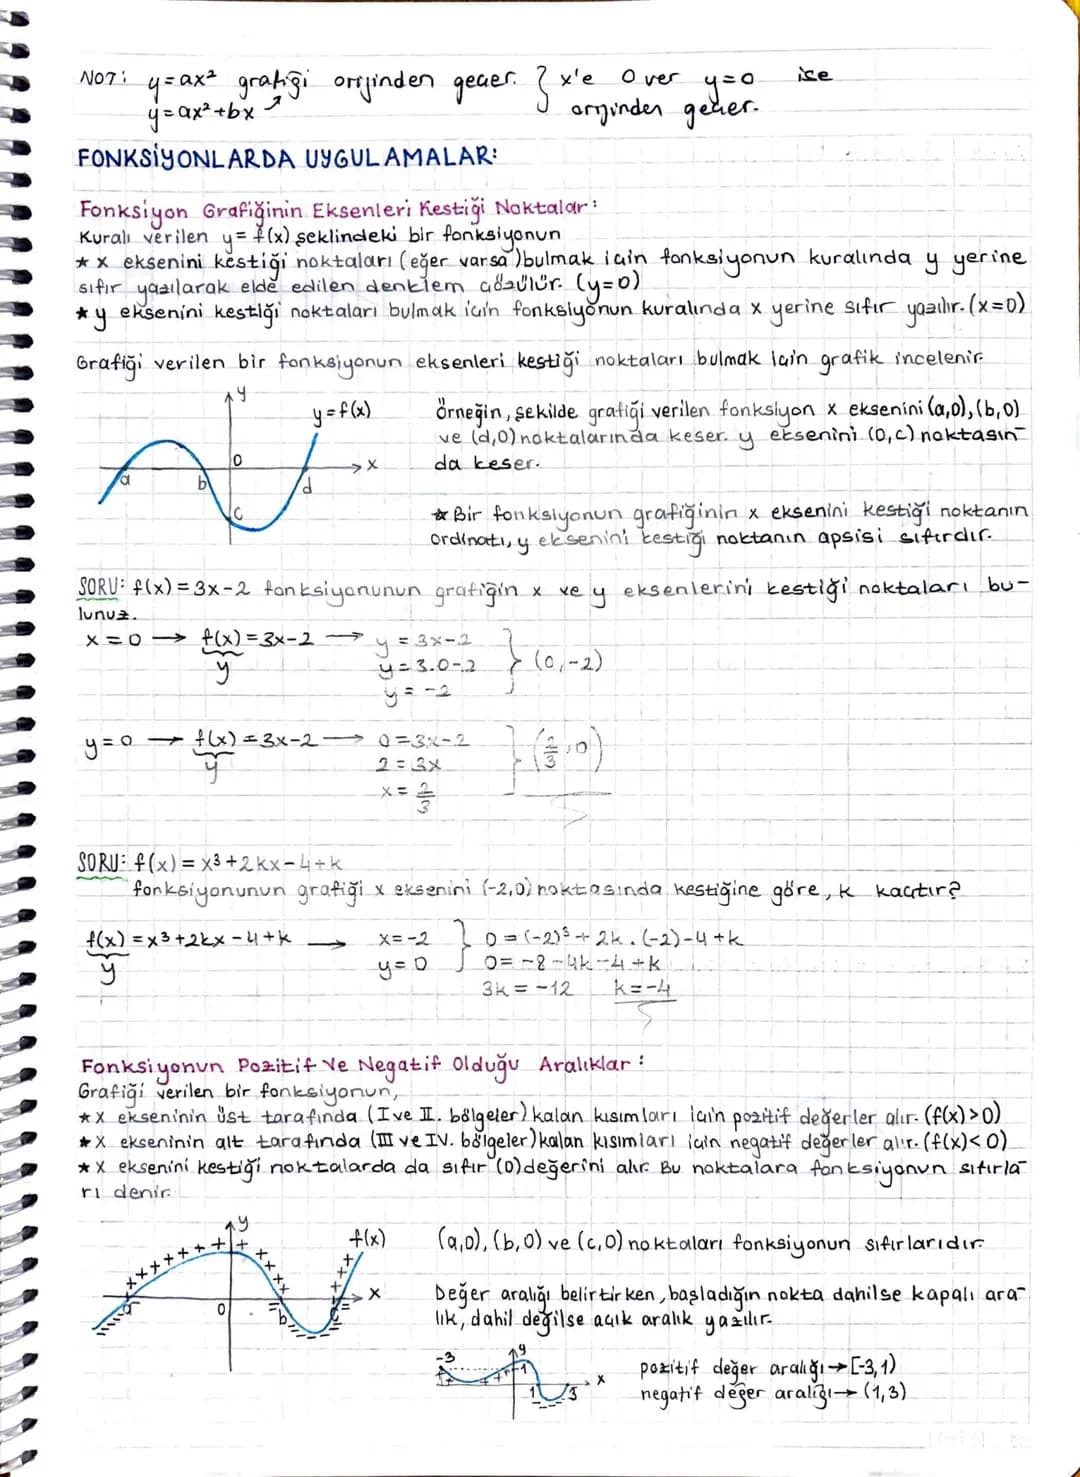 NOT: y=ax² grafiği orijinden geçer. } x'e 0 ver y=0 ise
y=ax²+bx ↗ orijinden geçer.
FONKSİYONLARDA UYGULAMALAR:
Fonksiyon Grafiğinin Eksenleri Kestiği Noktalar:
Kuralı verilen y=f(x) şeklindeki bir fonksiyonun
★ x eksenini kestiği noktaları (eğer varsa) bulmak için fonksiyonun kuralında y yerine
sıfır yazılarak elde edilen denklem çözülür. (y=0)
★ y eksenini kestiği noktaları bulmak için fonksiyonun kuralında x yerine sıfır yazılır. (x=0)
Grafiği verilen bir fonksiyonun eksenleri kestiği noktaları bulmak için grafik incelenir.
y
y=f(x)
0
x
a b d
c
Örneğin, şekilde grafiği verilen fonksiyon x eksenini (a,0), (b,0)
ve (d,0) noktalarında keser. y eksenini (0,c) noktasın-
da keser.
★ Bir fonksiyonun grafiğinin x eksenini kestiği noktanın
ordinatı, y eksenini kestiği noktanın apsisi sıfırdır.
SORU: f(x)=3x-2 fonksiyonunun grafiğin x ve y eksenlerini kestiği noktaları bu-
lunuz.
x=0 → f(x)=3x-2 → y=3x-2
y y=3.0-2 } (0,-2)
y=-2
y=0 → f(x)=3x-2 → 0=3x-2
y 2=3x } (2/3,0)
x=2/3
SORU: f(x)=x³+2kx-4+k
fonksiyonunun grafiği x eksenini (-2,0) noktasında kestiğine göre, k kaçtır?
f(x)=x³+2kx-4+k → x=-2 } 0=(-2)³+2k.(-2)-4+k
y y=0 0=-8-4k-4+k
3k=-12 k=-4
Fonksiyonun Pozitif Ve Negatif Olduğu Aralıklar:
Grafiği verilen bir fonksiyonun,
★ x ekseninin üst tarafında (I ve II. bölgeler) kalan kısımları için pozitif değerler alır. (f(x)>0)
★ x ekseninin alt tarafında (III ve IV. bölgeler) kalan kısımları için negatif değerler alır. (f(x)<0)
★ x eksenini kestiği noktalarda da sıfır (0) değerini alır. Bu noktalara fonksiyonun sıfırla-
rı denir.
y
f(x)
x
a 0 b c
(a,0), (b,0) ve (c,0) noktaları fonksiyonun sıfırlarıdır.
Değer aralığı belirtirken, başladığın nokta dahilse kapalı ara-
lık, dahil değilse açık aralık yazılır.
-3 y
1 x
1 3
pozitif değer aralığı → [-3,1)
negatif değer aralığı → (1,3)